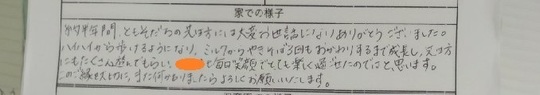 家での様子
約半年間、ともそだちの先生方には大変お世話になりありがとうございました。
ハイハイから歩けるようになり、ミルクからやきそば3回もおかわりするまで成長し、先生方
にもたくさん遊んでもらい、も毎日笑顔でとても楽しく過ごせたのでにと思います。
この縁を大切に、また何かありましたらよろしくお願いいたします。